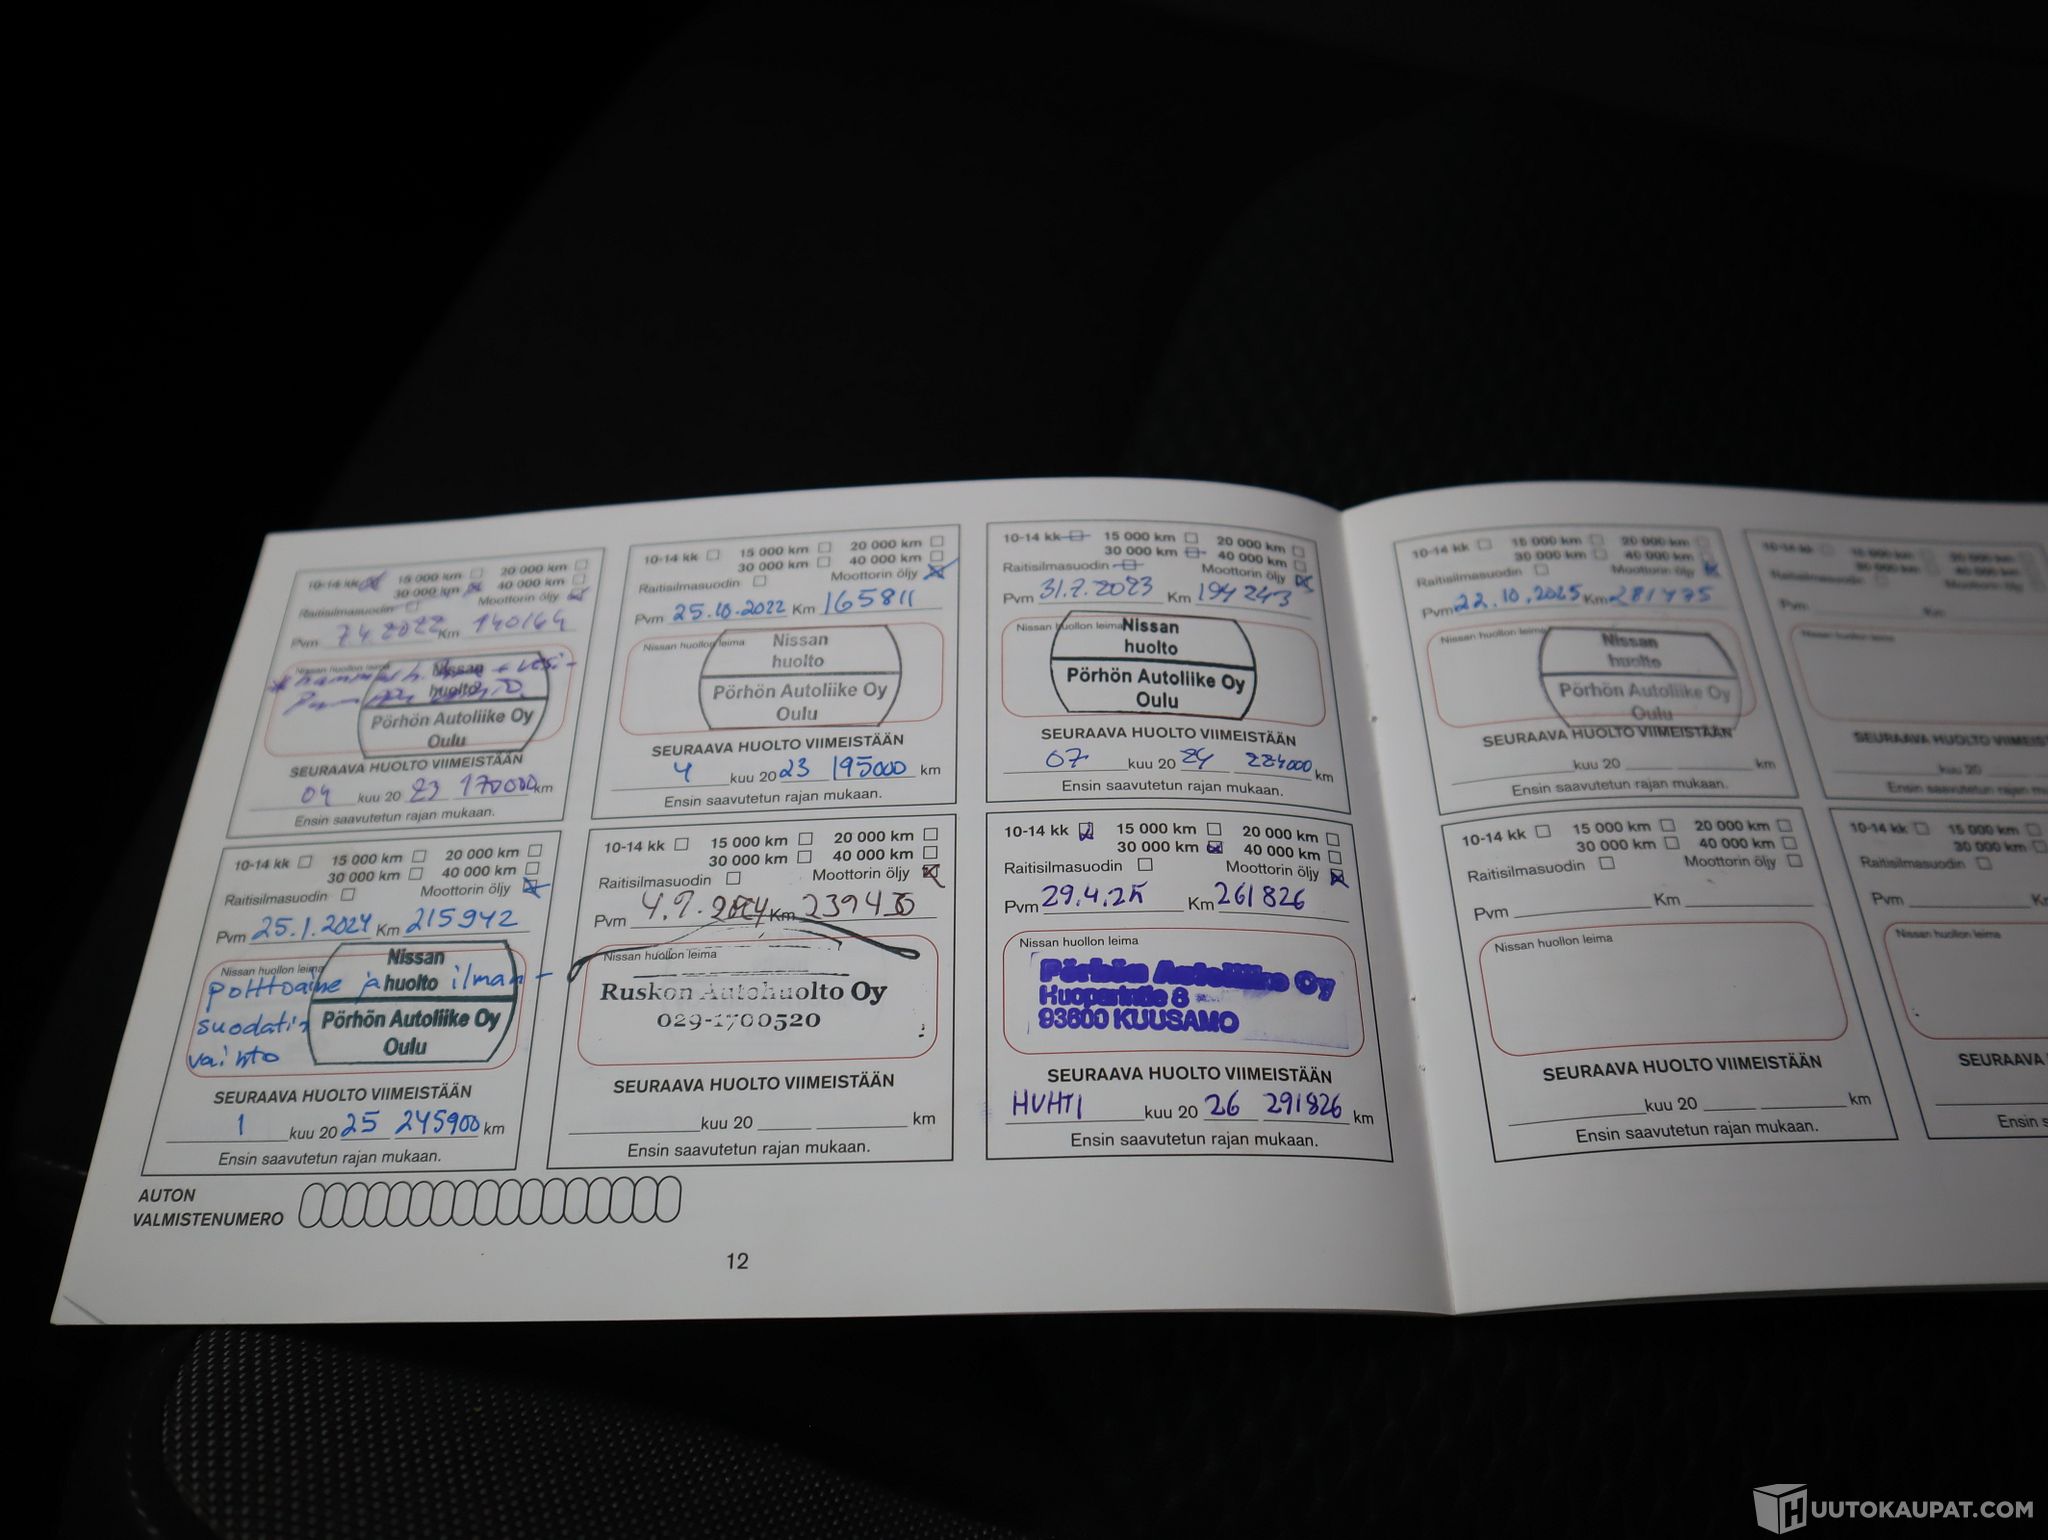 10-14 kk 15 000 km 20 000 km
30 000 km 40 000 km
Raitisilmasuodin Moottorin öljy
Pvm 7.4.2022 Km 140164
Nissan huollon leima
Nissan
huolto
Pörhön Autoliike Oy
Oulu
SEURAAVA HUOLTO VIIMEISTÄÄN
04 kuu 20 23 170000 km
Ensin saavutetun rajan mukaan.
10-14 kk 15 000 km 20 000 km
30 000 km 40 000 km
Raitisilmasuodin Moottorin öljy
Pvm 25.10.2022 Km 165811
Nissan huollon leima
Nissan
huolto
Pörhön Autoliike Oy
Oulu
SEURAAVA HUOLTO VIIMEISTÄÄN
4 kuu 20 23 195000 km
Ensin saavutetun rajan mukaan.
10-14 kk 15 000 km 20 000 km
30 000 km 40 000 km
Raitisilmasuodin Moottorin öljy
Pvm 31.7.2023 Km 194243
Nissan huollon leima
Nissan
huolto
Pörhön Autoliike Oy
Oulu
SEURAAVA HUOLTO VIIMEISTÄÄN
07 kuu 20 24 224000 km
Ensin saavutetun rajan mukaan.
10-14 kk 15 000 km 20 000 km
30 000 km 40 000 km
Raitisilmasuodin Moottorin öljy
Pvm 25.1.2024 Km 215942
Nissan huollon leima
Nissan
polttoaine ja huolto ilman-
suodatin Pörhön Autoliike Oy
vaihto Oulu
SEURAAVA HUOLTO VIIMEISTÄÄN
1 kuu 20 25 245900 km
Ensin saavutetun rajan mukaan.
10-14 kk 15 000 km 20 000 km
30 000 km 40 000 km
Raitisilmasuodin Moottorin öljy
Pvm 4.9.2024 Km
Nissan huollon leima
Ruskon Autohuolto Oy
029-1700520
SEURAAVA HUOLTO VIIMEISTÄÄN
kuu 20 km
Ensin saavutetun rajan mukaan.
10-14 kk 15 000 km 20 000 km
30 000 km 40 000 km
Raitisilmasuodin Moottorin öljy
Pvm 29.4.25 Km 261826
Nissan huollon leima
Pörhön Autoliike Oy
93600 KUUSAMO
SEURAAVA HUOLTO VIIMEISTÄÄN
HUHTI kuu 20 26 291826 km
Ensin saavutetun rajan mukaan.
AUTON
VALMISTENUMERO
12
10-14 kk 15 000 km 20 000 km
30 000 km 40 000 km
Raitisilmasuodin Moottorin öljy
Pvm 22.10.2025 Km 281475
Nissan huollon leima
Nissan
huolto
Pörhön Autoliike Oy
Oulu
SEURAAVA HUOLTO VIIMEISTÄÄN
kuu 20 km
Ensin saavutetun rajan mukaan.
10-14 kk 15 000 km 20 000 km
30 000 km 40 000 km
Raitisilmasuodin
Pvm Km
Nissan huollon leima
SEURAAVA HUOLTO
kuu 20
Ensin saavutetun rajan
10-14 kk 15 000 km 20 000 km
30 000 km 40 000 km
Raitisilmasuodin Moottorin öljy
Pvm Km
Nissan huollon leima
SEURAAVA HUOLTO VIIMEISTÄÄN
kuu 20 km
Ensin saavutetun rajan mukaan.
10-14 kk 15 000 km
30 000 km
Raitisilmasuodin
Pvm
Nissan huollon leima
SEURAAVA HUOLTO
Ensin
HUUTOKAUPAT.COM